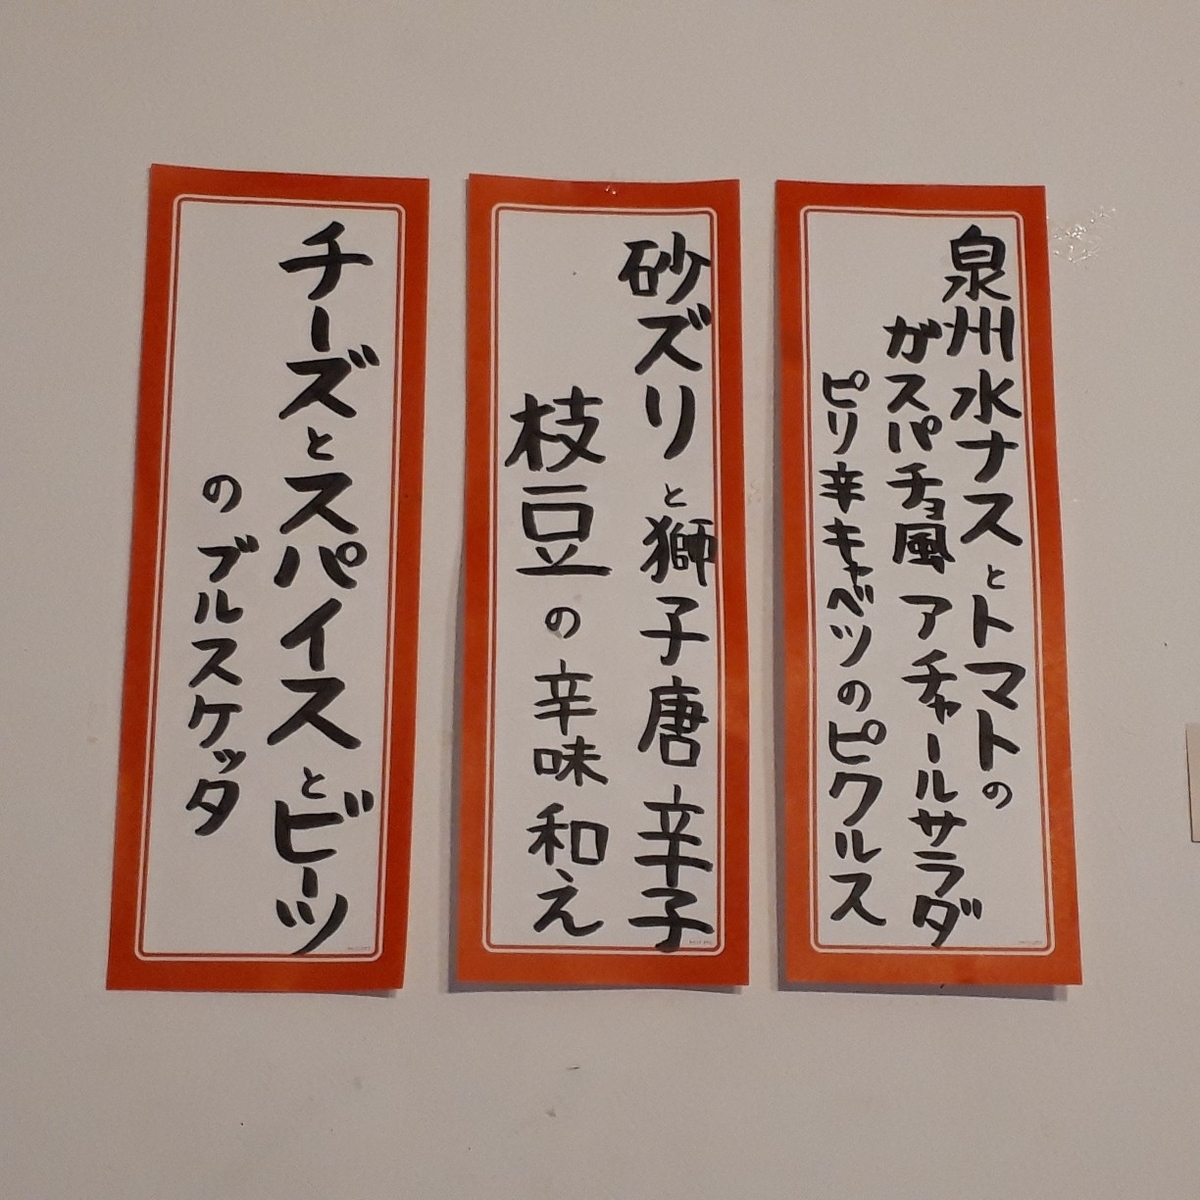 泉州水ナスとトマトの
ガスパチョ風アチャールサラダ
ピリ辛キャベツのピクルス
砂ズリと獅子唐辛子
枝豆の辛味和え
チーズとスパイスとビーツ
のブルスケッタ